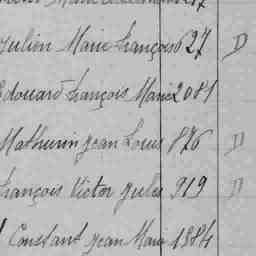 Julien Marie François 627 D
Edouard François Marie 2081
Mathurin Jean Louis 876 D
François Victor Jules 919 D
Constant Jean Marie 1884